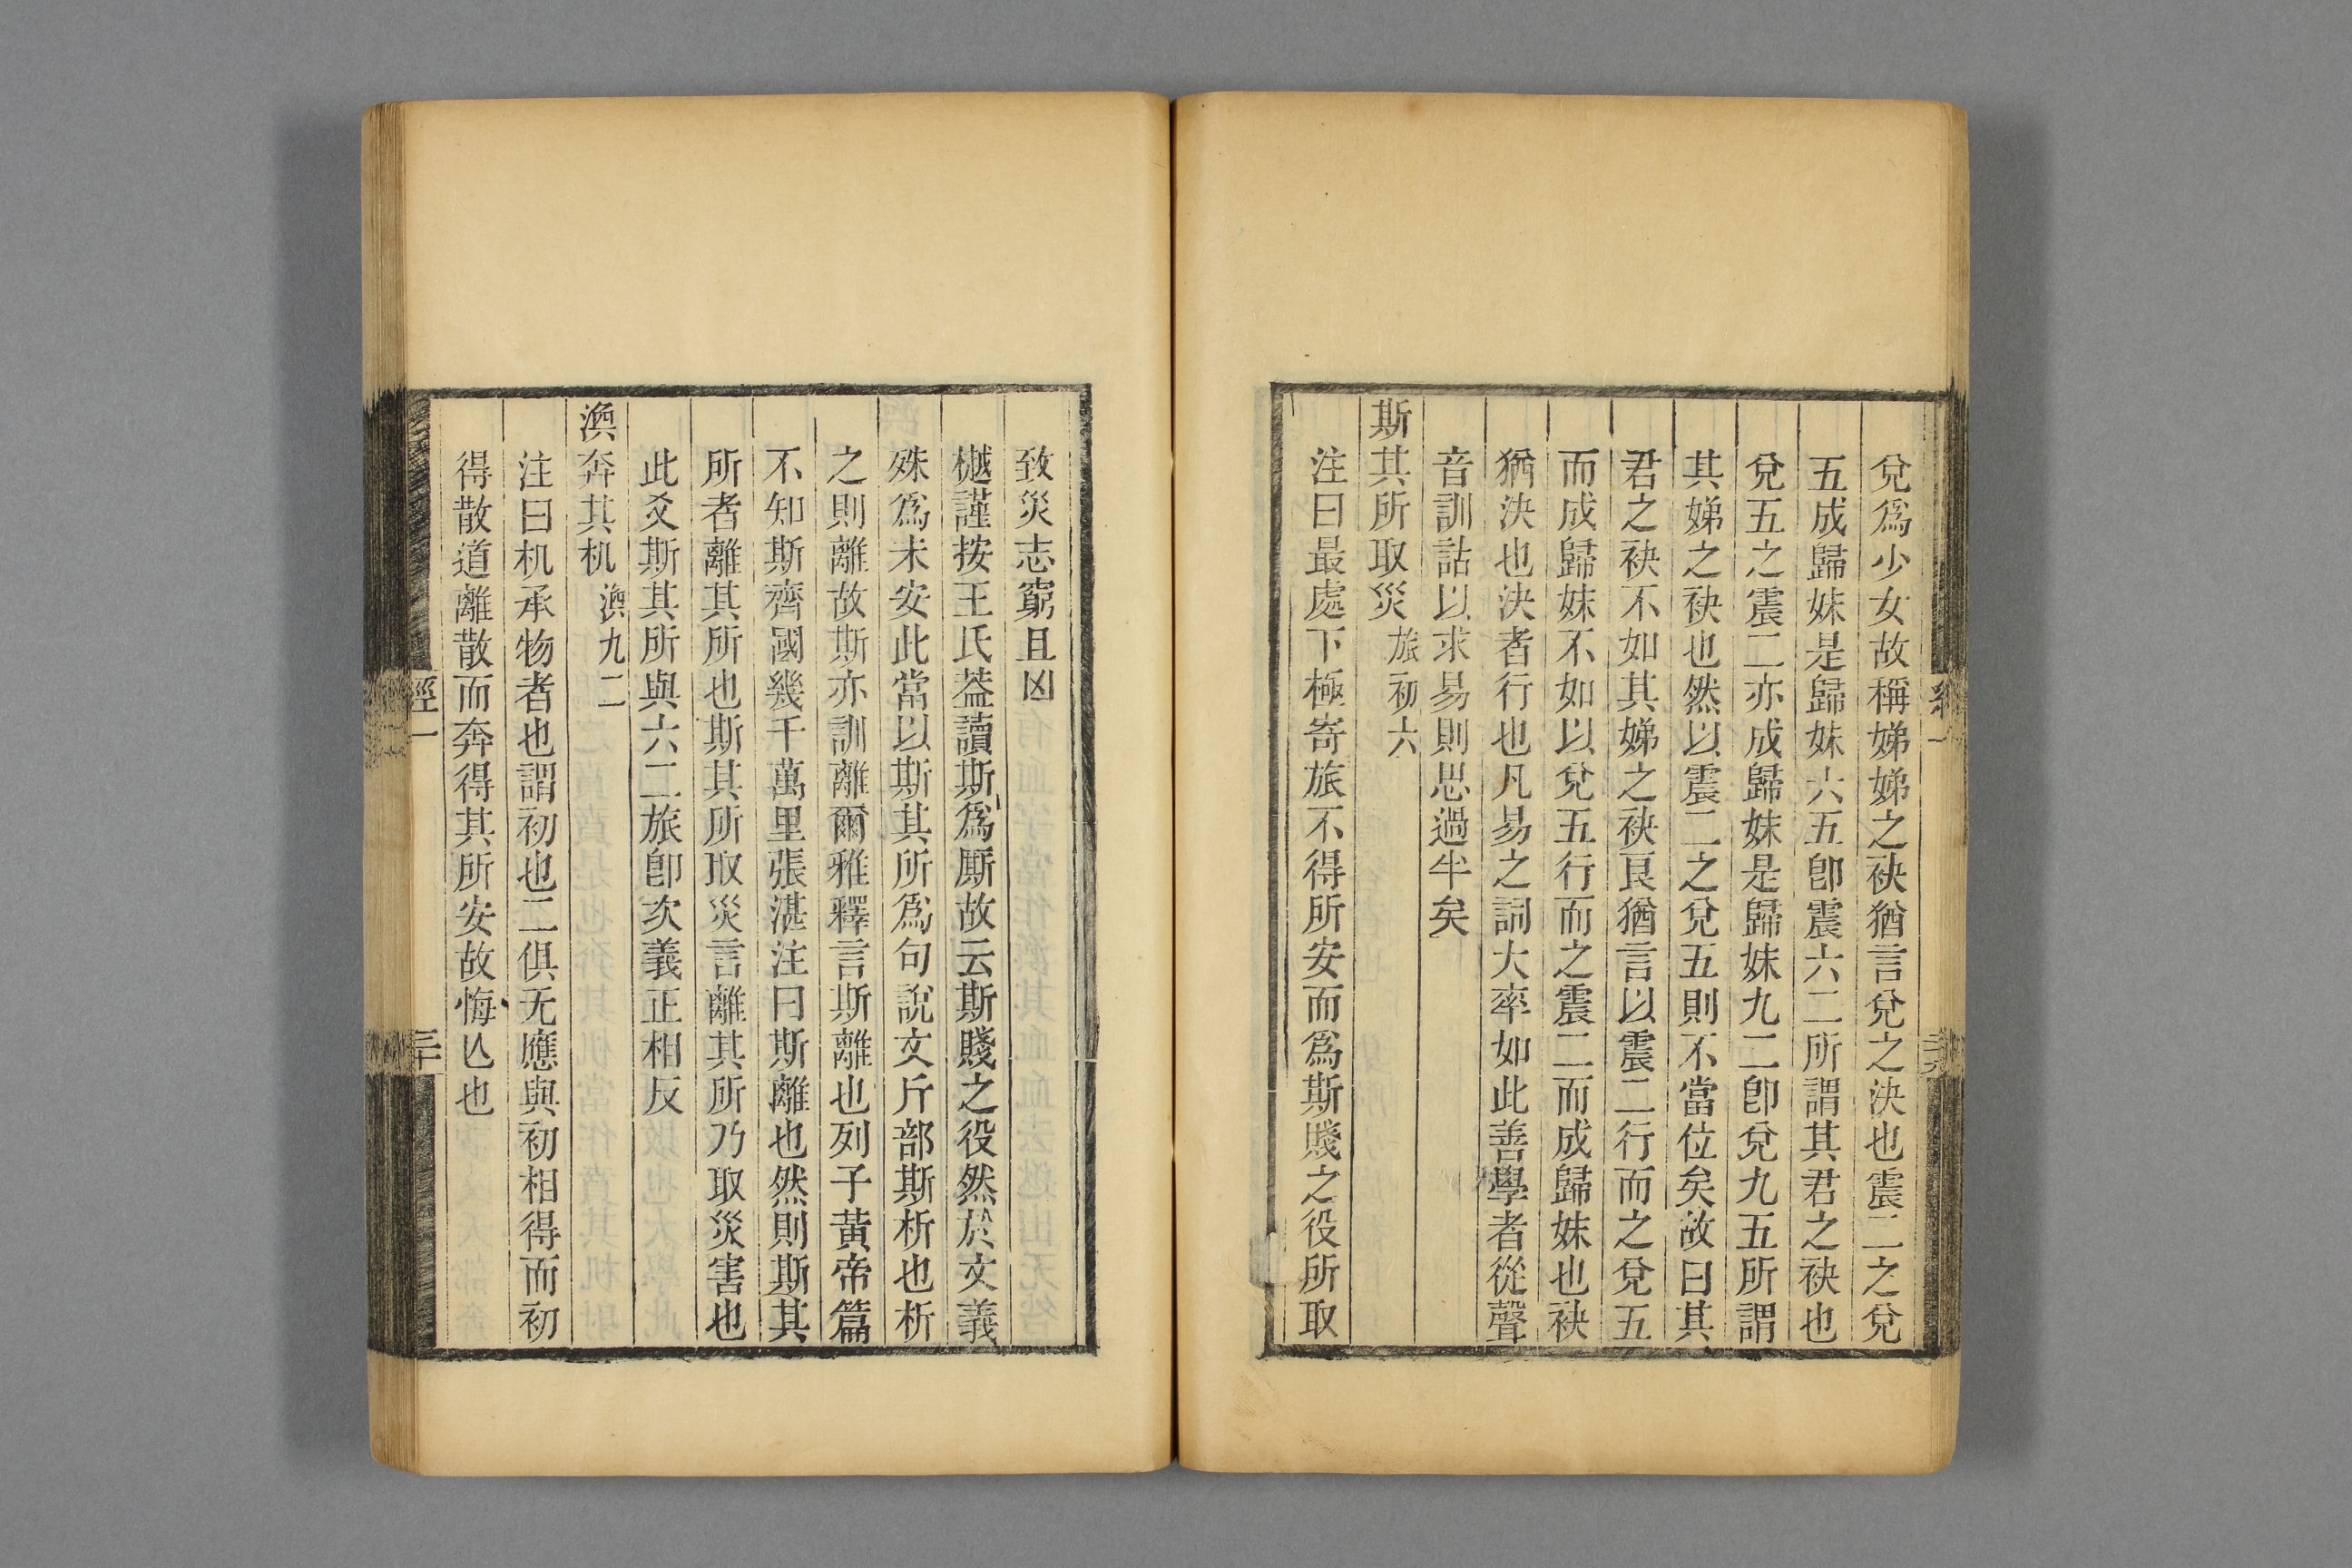 兌爲少女故稱娣娣之袂猶言兌之決也震二之兌
五成歸妹是歸妹六五卽震六二所謂其君之袂也
兌五之震二亦成歸妹是歸妹九二卽兌九五所謂
其娣之袂也然以震二之兌五則不當位矣故曰其
君之袂不如其娣之袂良猶言以震二行而之兌五
而成歸妹不如以兌五行而之震二而成歸妹也袂
猶決也決者行也凡易之詞大率如此善學者從聲
音訓詁以求易則思過半矣
斯其所取災 旅初六
注曰最處下極寄旅不得所安而爲斯賤之役所取
致災志窮且凶
樾謹按王氏葢讀斯爲厮故云斯賤之役然於文義
殊爲未安此當以斯其所爲句說文斤部斯析也析
之則離故斯亦訓離爾雅釋言斯離也列子黃帝篇
不知斯齊國幾千萬里張湛注曰斯離也然則斯其
所者離其所也斯其所取災言離其所乃取災害也
此爻斯其所與六二旅卽次義正相反
渙奔其机 渙九二
注曰机承物者也謂初也二俱无應與初相得而初
得散道離散而奔得其所安故悔亾也
經一
三十